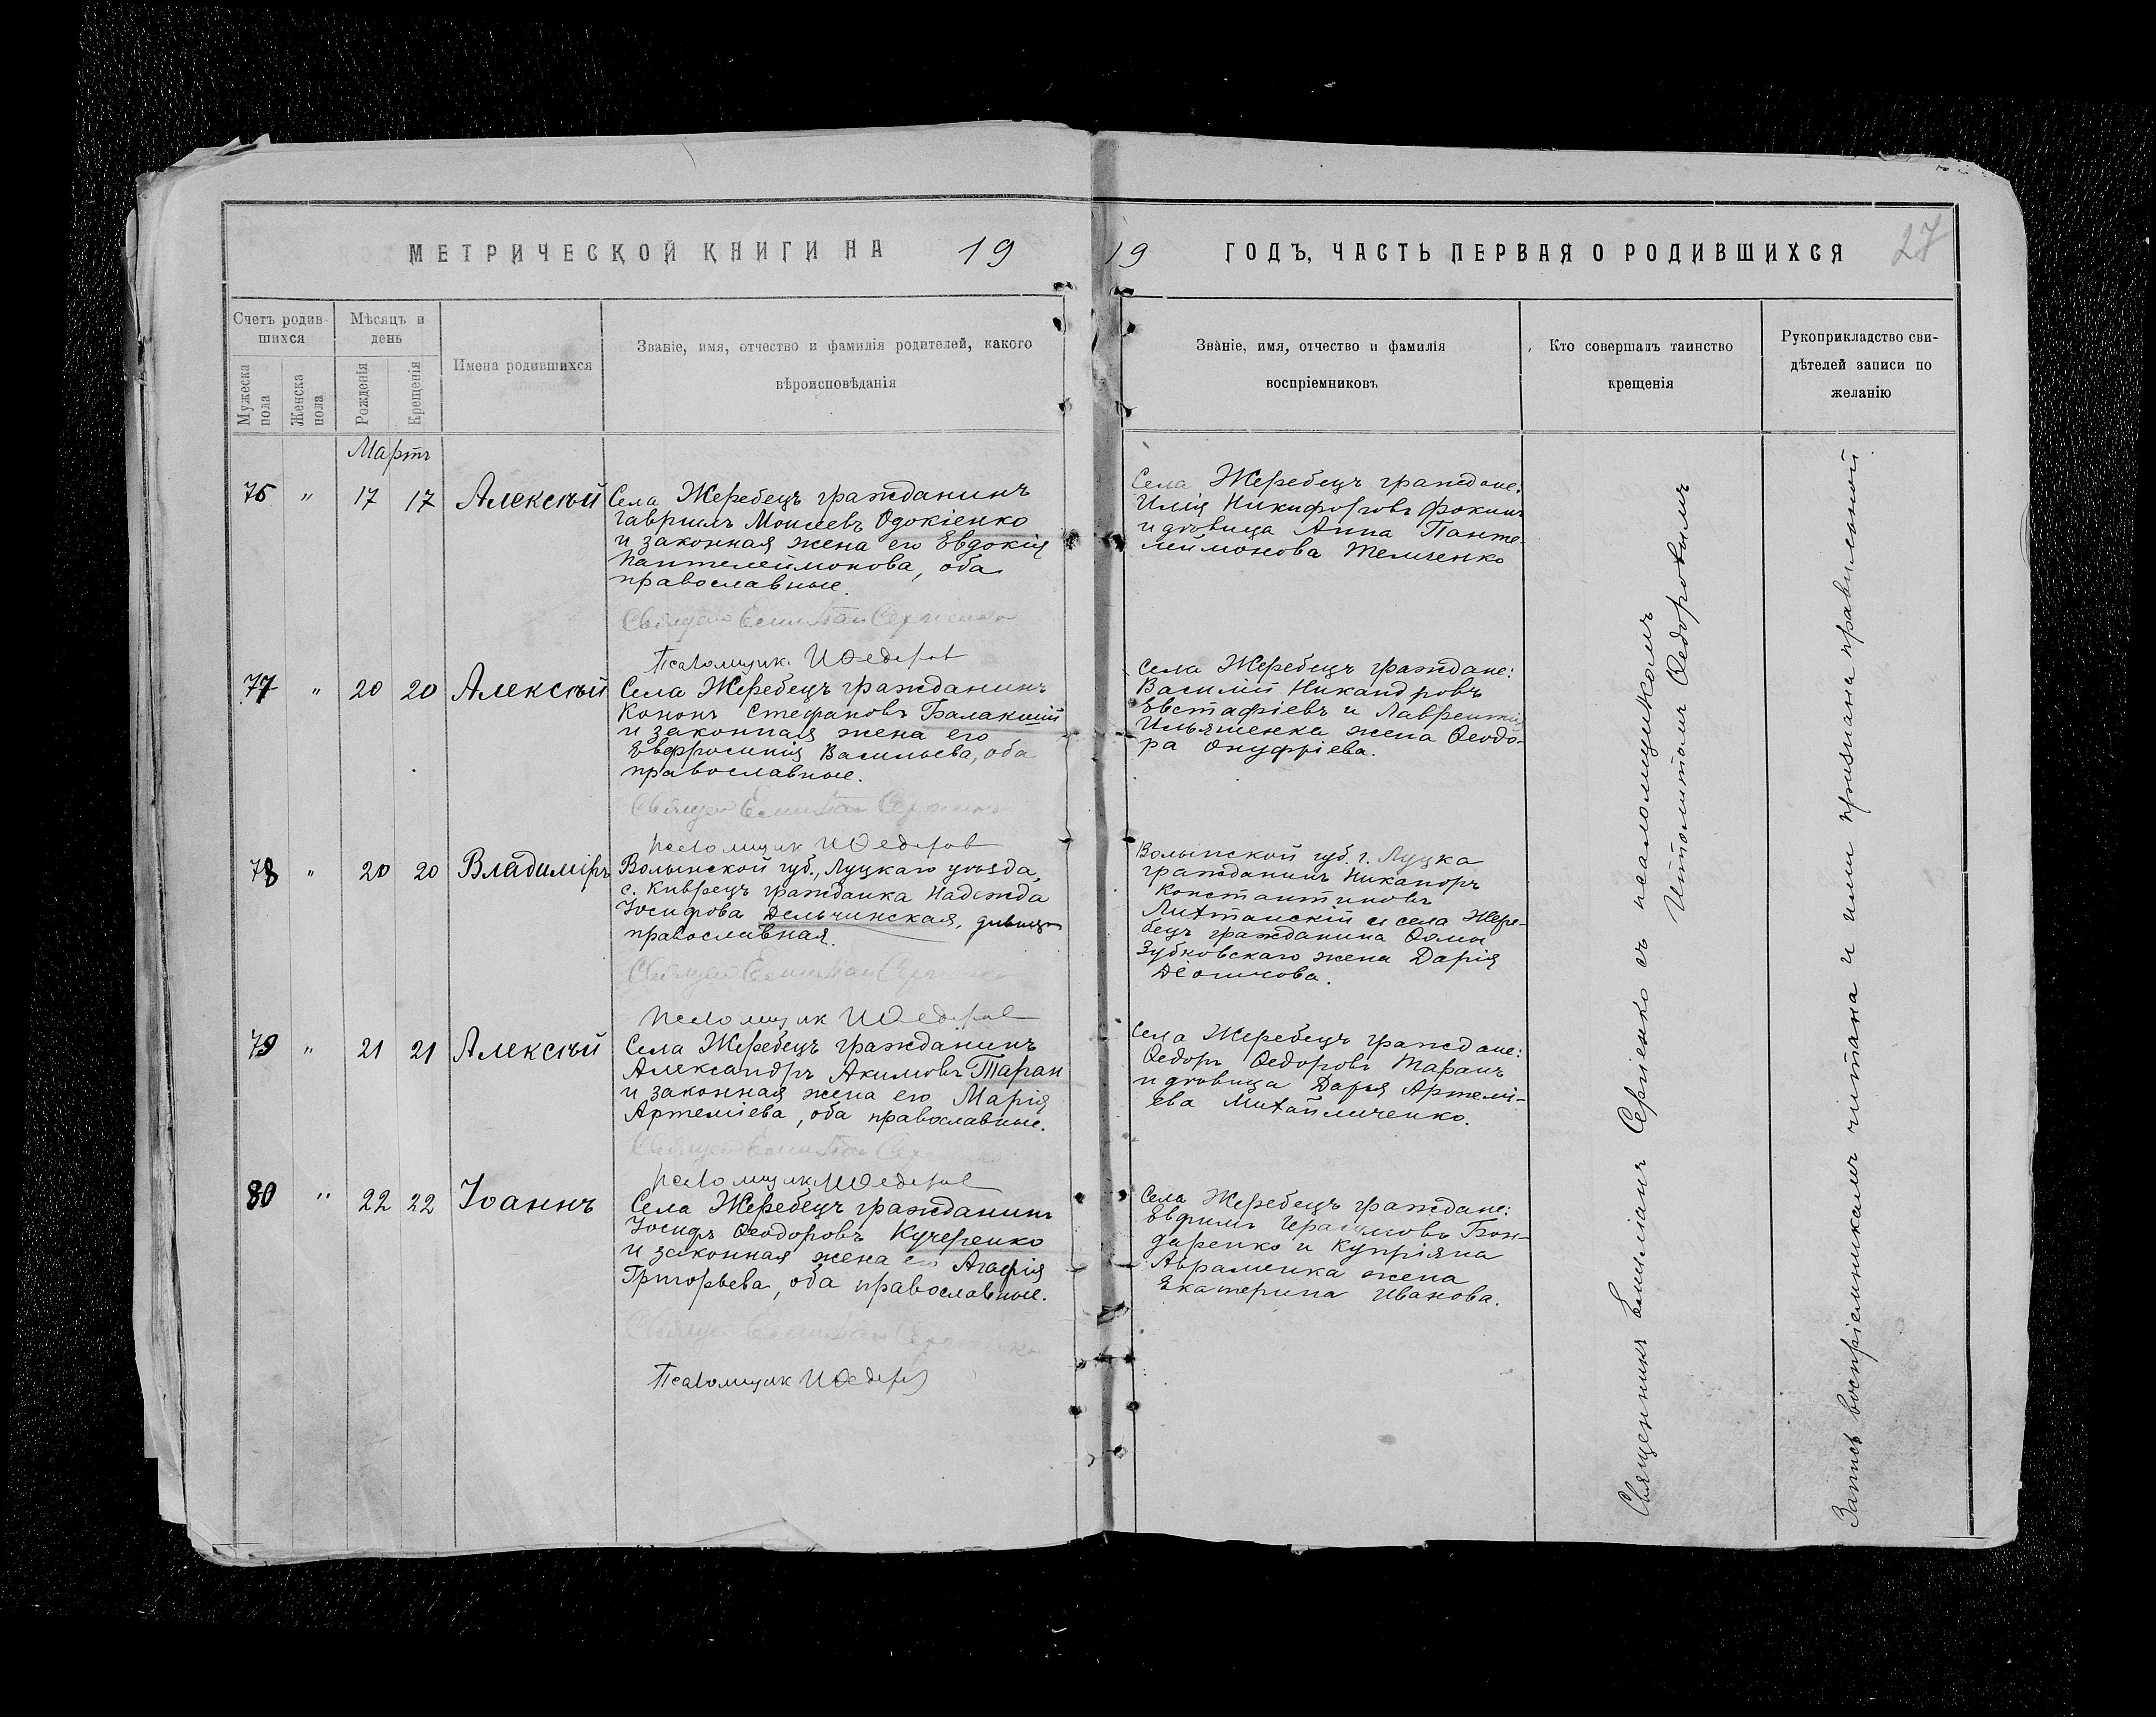 МЕТРИЧЕСКОЙ КНИГИ НА 19
19 ГОДЪ, ЧАСТЬ ПЕРВАЯ О РОДИВШИХСЯ 27
Счетъ родив-
шихся
Мужеска
пола
Женска
пола
Мѣсяцъ и
день
Рожденія
Крещенія
Имена родившихся
Званіе, имя, отчество и фамилія родителей, какого
вѣроисповѣданія
Званіе, имя, отчество и фамилія
воспріемниковъ
Кто совершалъ таинство
крещенія
Рукоприкладство сви-
дѣтелей записи по
желанію
Мартъ
76 " 17 17 Алексѣй
Села Жеребецъ гражданинъ
Гавриилъ Моисеевъ Одокіенко
и законная жена его Евдокія
Пантелеймонова, оба
православные.
Емиліан Сергіенко
Псаломщик. И Ѳедоров
Села Жеребецъ граждане:
Илія Никифоровъ Фокинъ
и дѣвица Анна Панте-
леймонова Темченко
77 " 20 20 Алексѣй
Села Жеребецъ гражданинъ
Кононъ Стефановъ Балакший
и законная жена его
Евфросинія Васильева, оба
православные.
Емиліан Сергіенко
Псаломщик И Ѳедоров
Села Жеребецъ граждане:
Василій Никандровъ
Евстафіевъ и Лаврентія
Ильяшенка жена Ѳеодо-
ра Онуфріева.
78 " 20 20 Владиміръ
Волынской губ., Луцкаго уѣзда,
с. Киврецъ гражданка Надежда
Іосифова Дельчинская, дѣвица
православная.
Емиліан Сергіенко
Псаломщик И Ѳедоров
Волынской губ. г. Луцка
гражданинъ Никаноръ
Константиновъ
и села Жере-
бецъ гражданина Ѳомы
Зубковскаго жена Дарія
79 " 21 21 Алексѣй
Села Жеребецъ гражданинъ
Александръ Акимовъ Таран
и законная жена его Марія
Артеміева, оба православные.
Емиліан Сергіенко
Псаломщик И Ѳедоров
Села Жеребецъ граждане:
Ѳедоръ Ѳедоровъ Таранъ
и дѣвица Дарья Артемі-
ева Михайличенко.
80 " 22 22 Іоаннъ
Села Жеребецъ гражданинъ
Іосифъ Ѳеодоровъ Кучеренко
и законная жена его Агафія
Григорьева, оба православные.
Емиліан Сергіенко
Псаломщик И Ѳедоров
Села Жеребецъ граждане:
Евфимъ Герасимовъ Бон-
даренко и Купріяна
Авраменка жена
Екатерина Иванова.
Священникъ Емиліанъ Сергіенко съ псаломщикомъ
Ипполитомъ Ѳедоровымъ
Запись воспріемниками читана и ими признана правильной.